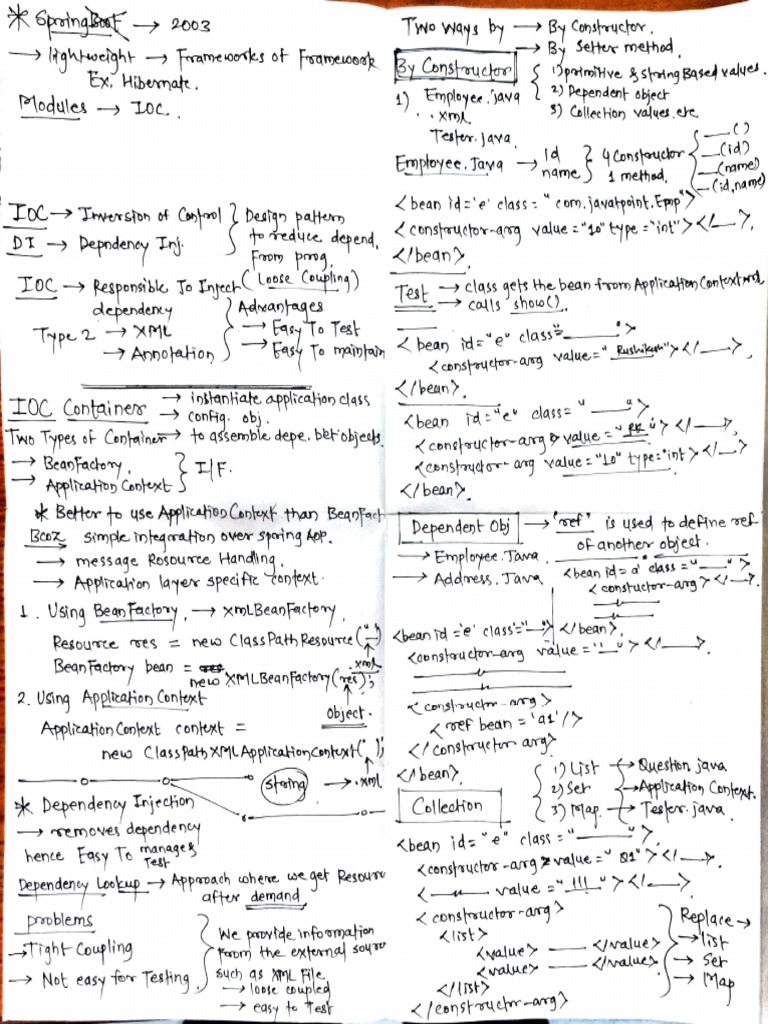 * Spring Boot → 2003
→ lightweight → Frameworks of Framework
Ex. Hibernate.
Modules → IOC.
IOC → Inversion of Control } Design pattern
DI → Depndency Inj. } to reduce depend.
From prog.
(Loose Coupling)
IOC → Responsible To Inject
dependency
Type 2 → XML
→ Annotation
Advantages
→ Easy To Test
→ Easy To maintain
IOC Container → instantiate application class
→ config. obj.
→ to assemble depe. bet objects
Two Types of Container
→ BeanFactory.
→ Application Context } I/F.
* Better to use Application Context than BeanFact
Bcoz simple integration over spring AOP.
→ message Rosource Handling.
→ Application layer specific context.
1. Using BeanFactory, → XmlBeanFactory.
Resource res = new ClassPathResource("_")
.xml
BeanFactory bean =
new XMLBeanFactory(res);
object.
2. Using Application Context
Application Context context =
new ClassPathXMLApplicationContext(" ");
string → .xml
* Dependency Injection
→ removes dependency
hence Easy To manage &
Test
Dependency Lookup → Approach where we get Resour
after demand
problems
→ Tight Coupling
→ Not easy for Testing.
We provide information
From the external sour
such as XML File
→ loose coupled
→ easy to Test
Two ways by → By Constructor.
→ By Setter method.
By Constructor
1) primitive & String Based values.
2) Dependent object
3) Collection values. etc
1) Employee.java
.xml
Tester.java.
Employee.Java → id
name } 4 Constructor
1 method.
__()
__(id)
__(name)
__(id,name)
<bean id='e' class = " com.javatpoint.Emp">
<constructor-arg value="10" type="int"></__>.
</bean>.
Test → class gets the bean from Application Context
→ calls show().
<bean id="e" class="______">
<constructor-arg value="Rushikesh"></__>.
</bean>.
<bean id="e" class= "____">
<constructor-arg value="RK"></__>.
<constructor-arg value="10" type="int"></__>
</bean>.
Dependent Obj → "ref" is used to define ref
of another object.
→ Employee.Java.
→ Address.Java
<bean id = a' class = "____">
<constuctor-arg></__>.
</bean>.
<bean id='e' class='__'>
<constructor-arg value='__'></__>.
<constructor-arg>
<ref bean = 'a1'/>
</constructor arg>
</bean>.
Collection
1) List
2) Set
3) Map
→ Question java
→ Application Context.
→ Tester.java.
<bean id= "e" class = "______">.
<constructor-arg value=" Q1"></__>.
<__"__ value="111"></__>.
<constructor-arg>
<list>
<value> ____ </value>
<value> ____ </value>
</list>
</constructor-arg>
Replace →
→ list
→ Set
→ Map